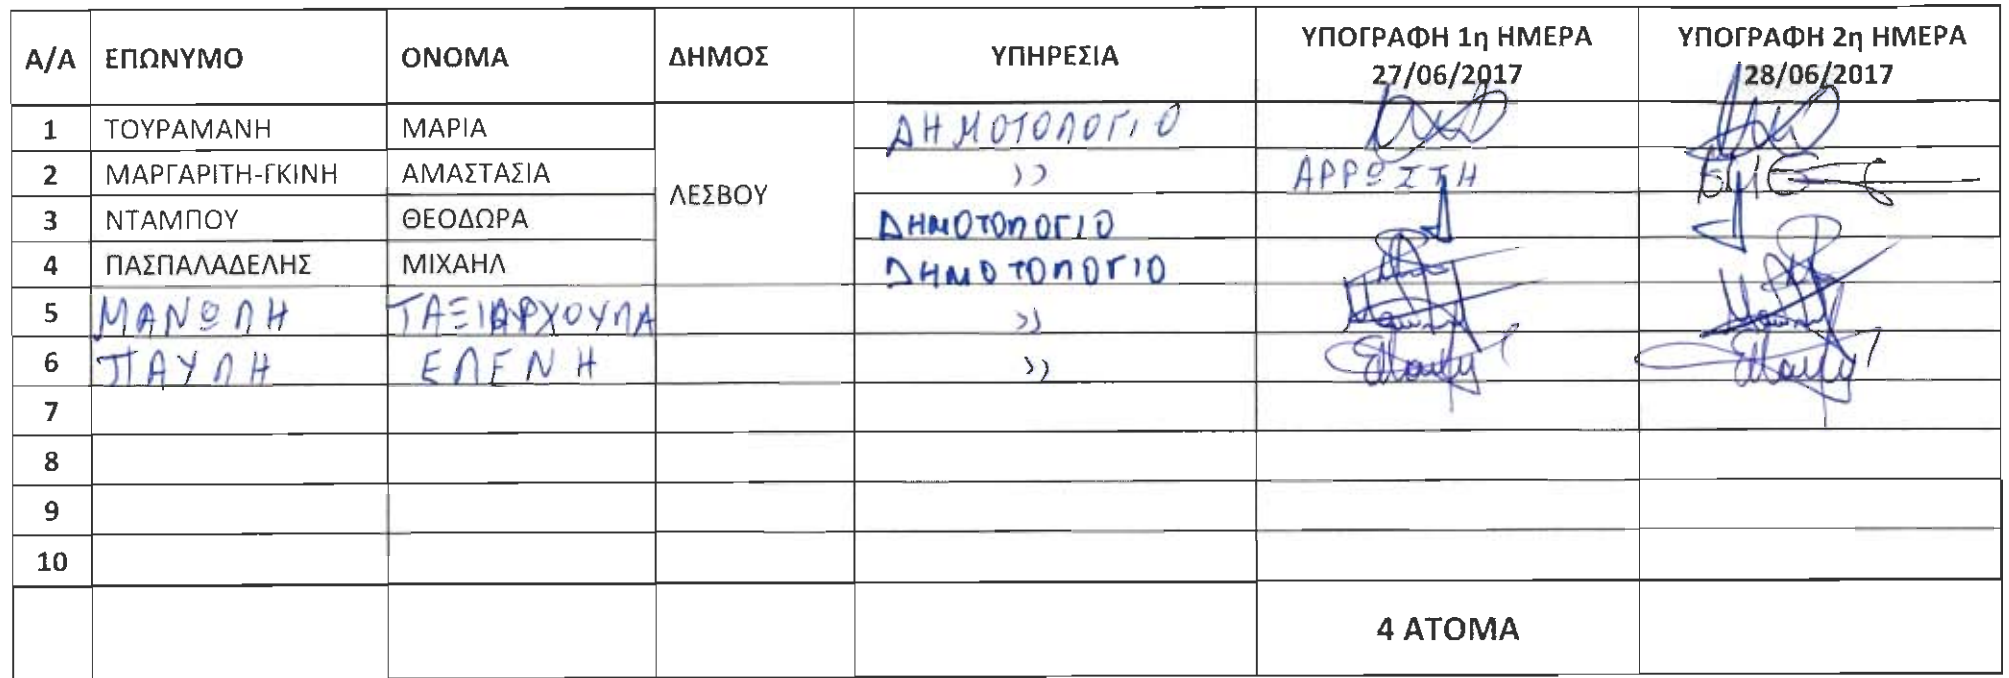 Α/Α ΕΠΩΝΥΜΟ ΟΝΟΜΑ ΔΗΜΟΣ ΥΠΗΡΕΣΙΑ ΥΠΟΓΡΑΦΗ 1η ΗΜΕΡΑ 27/06/2017 ΥΠΟΓΡΑΦΗ 2η ΗΜΕΡΑ 28/06/2017
1 ΤΟΥΡΑΜΑΝΗ ΜΑΡΙΑ ΔΗΜΟΤΟΛΟΓΙΟ
2 ΜΑΡΓΑΡΙΤΗ-ΓΚΙΝΗ ΑΜΑΣΤΑΣΙΑ ΛΕΣΒΟΥ )) ΑΡΡΩΣΤΗ
3 ΝΤΑΜΠΟΥ ΘΕΟΔΩΡΑ ΔΗΜΟΤΟΛΟΓΙΟ
4 ΠΑΣΠΑΛΑΔΕΛΗΣ ΜΙΧΑΗΛ ΔΗΜΟΤΟΛΟΓΙΟ
5 ΜΑΝΩΛΗ ΤΑΞΙΑΡΧΟΥΛΑ ))
6 ΠΑΥΛΗ ΕΛΕΝΗ ))
7
8
9
10
4 ΑΤΟΜΑ